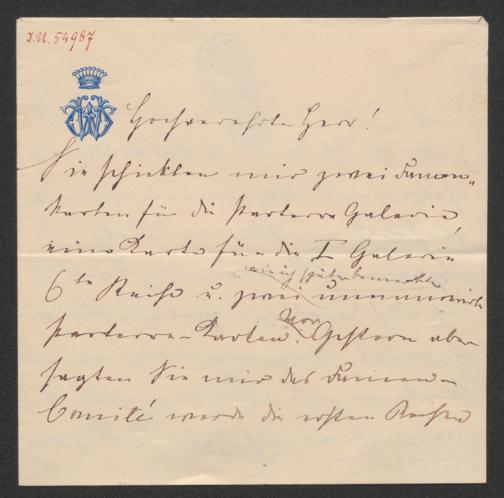 I.N. 54987
Hochverehrter Herr!
Sie schickten mir zwei Damen-
karten für die Parterre Galerie,
eine Karte für die I Galerie
wie ich später bemerkte
6te Reihe u. zwei nummerirte
Parterre-Karten. Vor Gestern aber
sagten Sie mir das Damen-
Comité werde die ersten Reihen